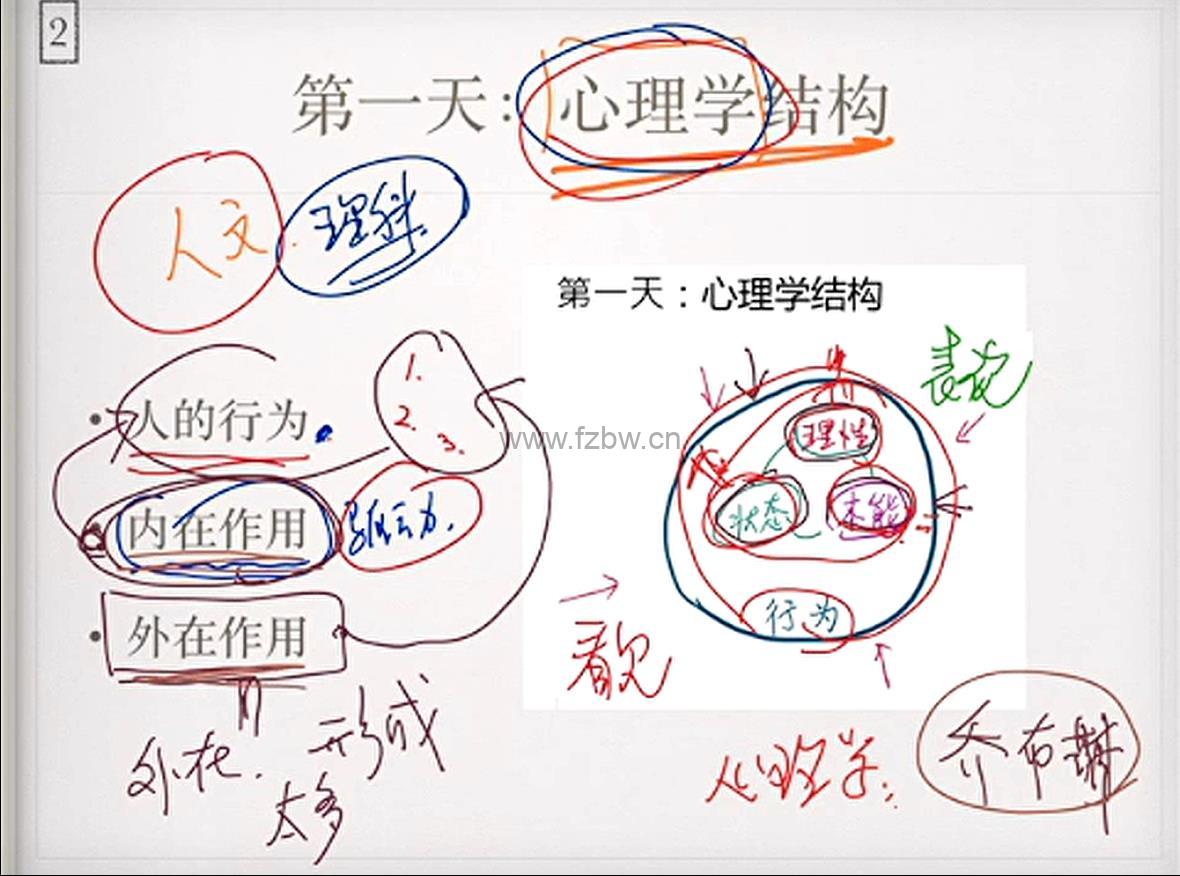 2
第一天：心理学结构
人文
理科
第一天：心理学结构
1.
2.
3.
人的行为
www.fzbw.cn
理性
状态
本能
内在作用
驱动力.
行为
外在作用
外在.
形成
太多
心理学: